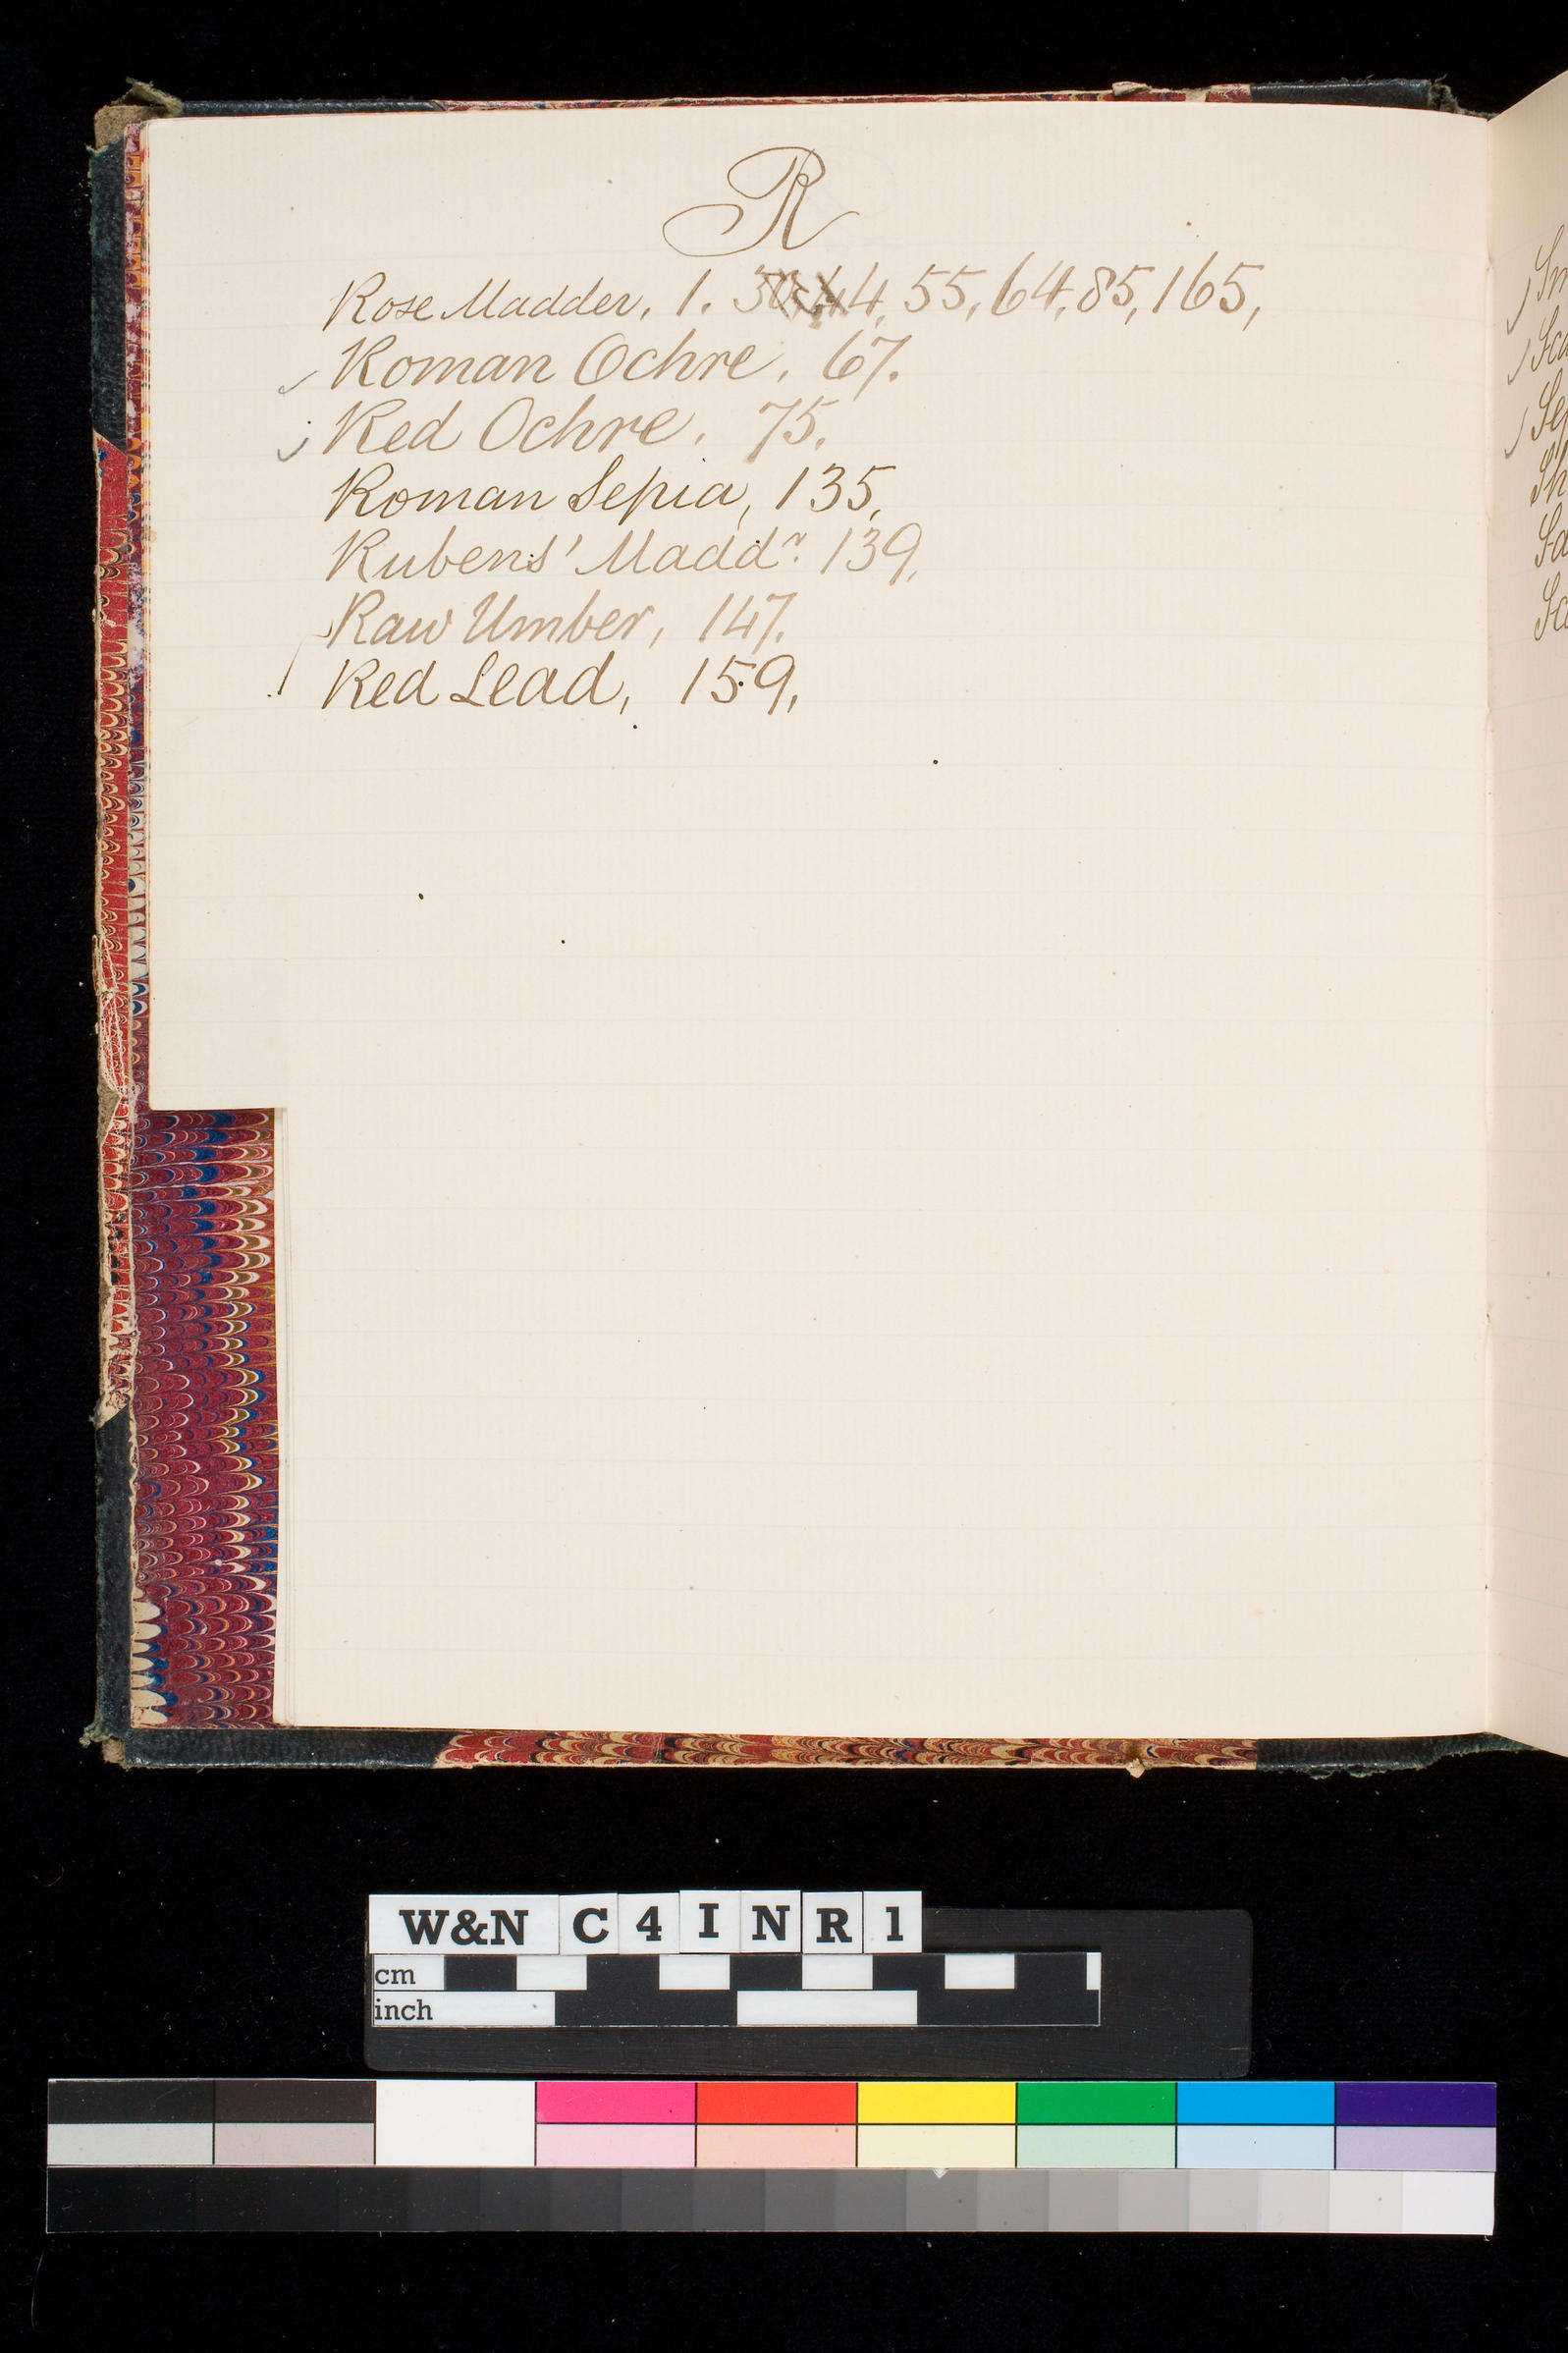 R
Rose Madder, 1. 44, 55, 64, 85, 165,
Roman Ochre, 67.
Red Ochre, 75.
Roman Sepia, 135,
Rubens' Maddr. 139,
Raw Umber, 147.
Red Lead, 159,
W&N C 4 I N R 1
cm
inch